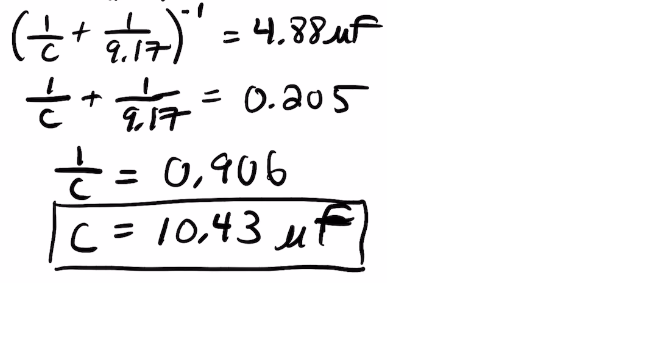 (1/C + 1/9.17)^-1 = 4.88 μF
1/C + 1/9.17 = 0.205
1/C = 0.906
C = 10.43 μF